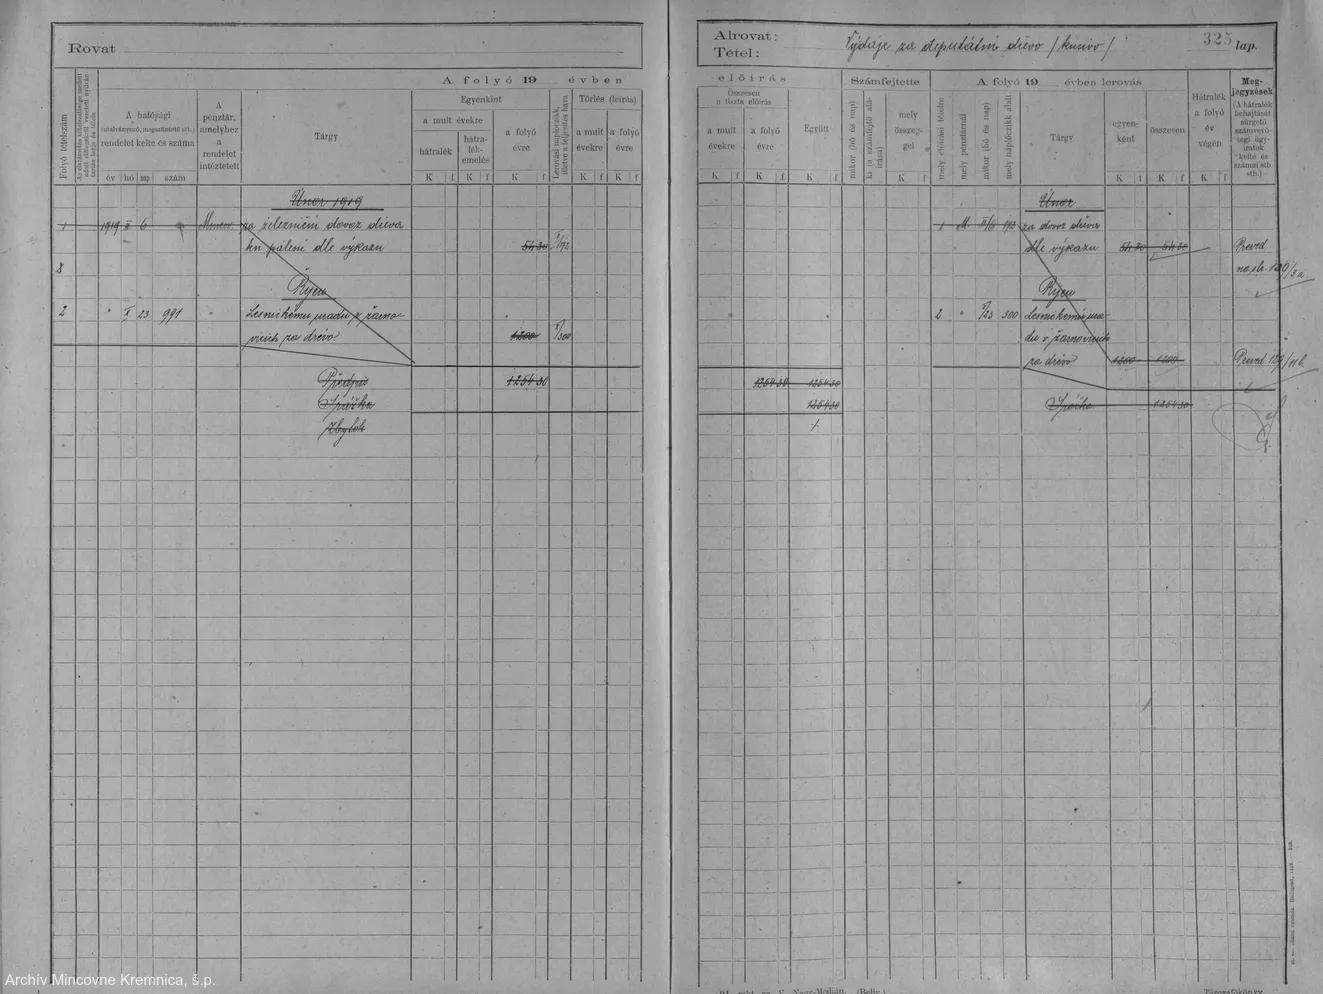 Rovat
A folyó 19 évben
Folyó tételszám
A hatósági
(utalványozó, megszüntető stb.)
rendelet kelte és száma
év hó nap szám
A
pénztár,
amelyhez
a
rendelet
intéztetett
Tárgy
Egyenkint
a mult évekre
hátralék
hátra-
lék-
emelés
a folyó
évre
Törlés (leírás)
a mult
évekre
a folyó
évre
K f K f K f K f
Únor 1919
1 1919 II 6
za železniční dovoz dřeva
kn pálení dle výkazu
54 30
II/192
8
Říjen
2 " X 23 991 "
Lesnickému úřadu v Žarno-
vicích za dřevo
1200
X/300
Předpis 1254 30
Srážka
Zbytek
Alrovat:
Tétel:
Výdaje za deputátní dřevo /kurivo/
325 lap.
előírás
Összesen
a tiszta előírás
a mult
évekre
a folyó
évre
Együtt
K f K f K f
Számfejtette
mikor (hó és nap)
ki (a számfejtő alá-
írása)
mely
összeg-
gel
K f
A folyó 19 évben lerovás
mely előírási tételre
mely pénztárnál
mikor (hó és nap)
mely naplócikk alatt
Tárgy
egyen-
ként
összesen
K f K f
Hátralék
a folyó
év
végén
K f
Meg-
jegyzések
(A hátralék
behajtását
sürgető
számvevő-
ségi ügy-
iratok
kelte és
számai stb.
stb.)
Únor
1 M II/6 192 za dovoz dřeva
dle výkazu 54 30 54 30
Převed
na str. 120/3a
Říjen
2 " X/23 300 Lesnickému úřa-
du v Žarnovicích
za dřevo 1200 1200
Převed 129/11b
1254 30 1254 30
1254 30
Srážka 1254 30
Archív Mincovne Kremnica, š.p.